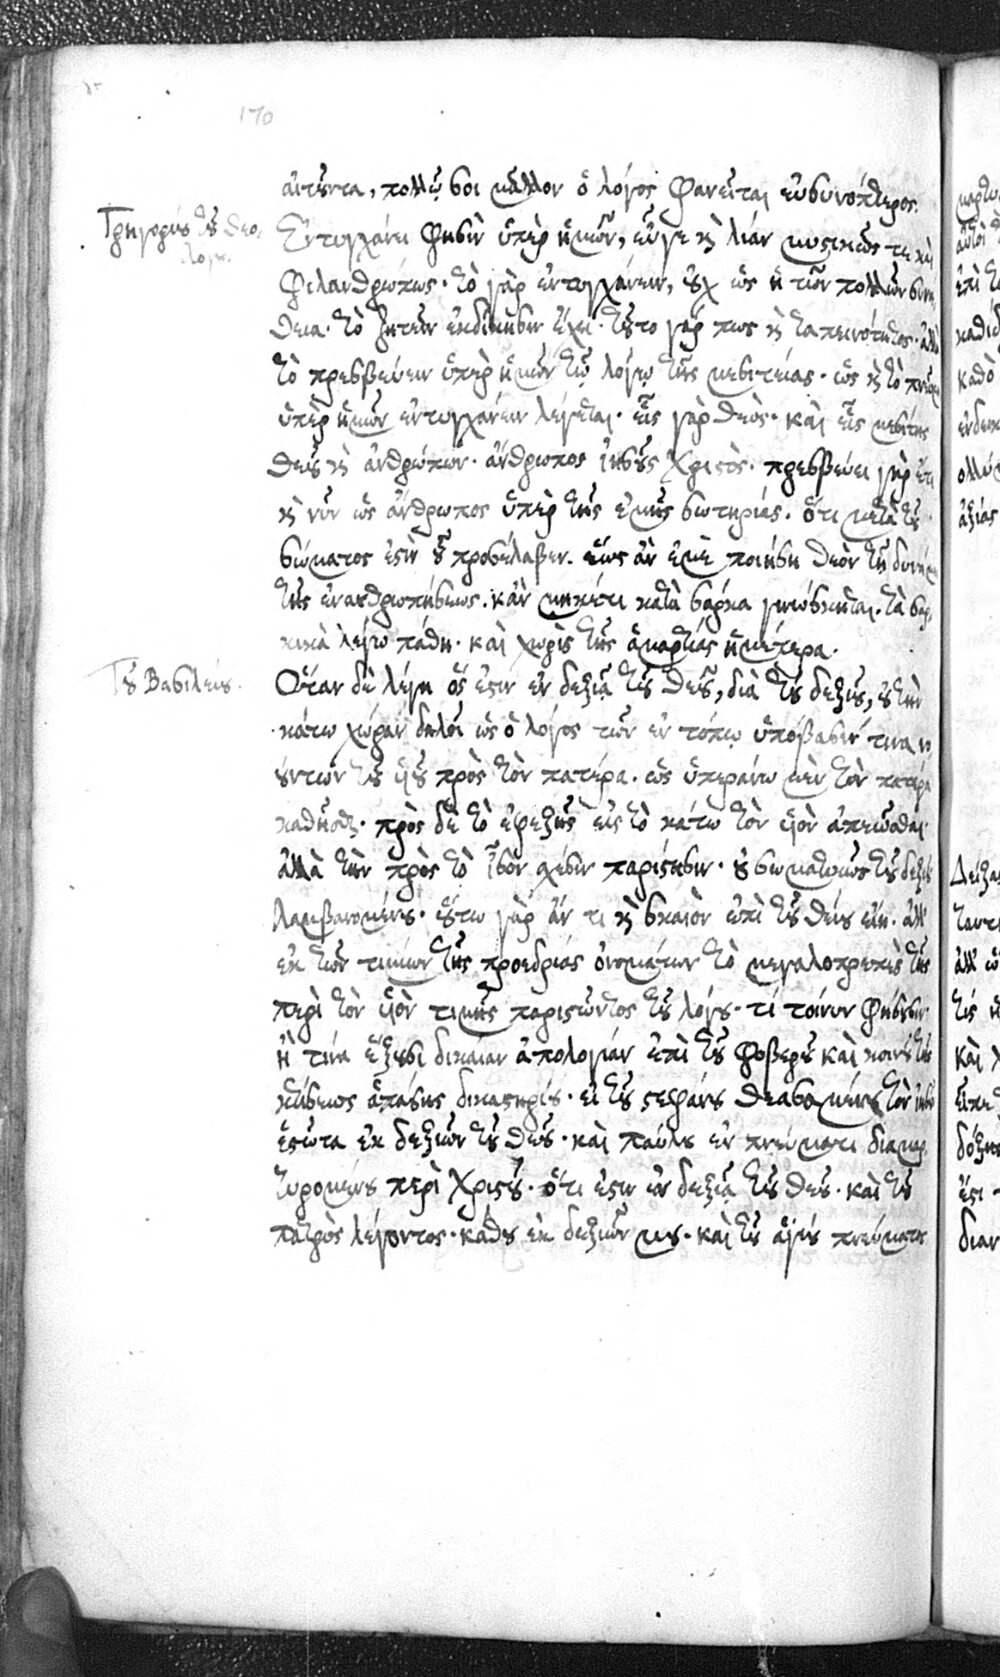 170
αἰτοῦντα, πολλῷ σοι μᾶλλον ὁ λόγος φανεῖται εὐσυνοπτερος.
Γρηγορίου τοῦ Θεολόγου.
Ἐντυγχάνει φησὶν ὑπὲρ ἡμῶν, εὖγε καὶ λίαν μυστικῶς τε καὶ
φιλανθρώπως. τὸ γὰρ ἐντυγχάνειν, οὐχ ὡς ἡ τῶν πολλῶν συνη
θεια. τὸ ζητεῖν ἐκδίκησιν ἔχει. τοῦτο γάρ πως καὶ ταπεινότητος. ἀλλὰ
τὸ πρεσβεύειν ὑπὲρ ἡμῶν τῷ λόγῳ τῆς μεσιτείας. ὡς καὶ τὸ πνεῦμα
ὑπὲρ ἡμῶν ἐντυγχάνειν λέγεται. εἷς γὰρ θεὸς. καὶ εἷς μεσίτης
θεοῦ καὶ ἀνθρώπων. ἄνθρωπος ἰησοῦς Χριστὸς. πρεσβεύει γὰρ ἔτι
καὶ νῦν ὡς ἄνθρωπος ὑπὲρ τῆς ἐμῆς σωτηρίας. ὅτι μετὰ τοῦ
σώματος ἐστὶν οὗ προσέλαβεν. ἕως ἂν ἐμὲ ποιήσῃ θεὸν τῇ δυνάμει
τῆς ἐνανθρωπήσεως. κἂν μηκέτι κατὰ σάρκα γινώσκηται. τὰ σαρ
κικὰ λέγω πάθη. καὶ χωρὶς τῆς ἁμαρτίας ἡμέτερα.
Τοῦ Βασιλείου.
Ὅταν δὲ λέγῃ ὅς ἐστιν ἐν δεξιᾷ τοῦ θεοῦ, διὰ τοῦ δεξιοῦ, οὐ τὴν
κάτω χώραν δηλοῖ ὡς ὁ λόγος τῶν ἐν τόπῳ ὑπόβασίν τινα νο
ούντων τοῦ υἱοῦ πρὸς τὸν πατέρα. ὡς ὑπεράνω μὲν τὸν πατέρα
καθῆσθαι. πρὸς δὲ τὸ ἐφεξῆς εἰς τὸ κάτω τὸν υἱὸν ἀπεῶσθαι.
ἀλλὰ τὴν πρὸς τὸ ἴσον σχέσιν παρίστησιν. οὐ σωματικῶς τοῦ δεξιοῦ
λαμβανομένου. οὕτω γὰρ ἄν τι καὶ σκαιὸν ἐπὶ τοῦ θεοῦ εἴη. ἀλλ'
ἐκ τῶν τιμίων τῆς προεδρίας ὀνομάτων τὸ μεγαλοπρεπὲς τῆς
περὶ τὸν υἱὸν τιμῆς παριστῶντος τοῦ λόγου. τί τοίνυν φήσουσιν
ἢ τίνα ἕξουσι δικαίαν ἀπολογίαν ἐπὶ τοῦ φοβεροῦ καὶ κοινοῦ τῆς
κτίσεως ἁπάσης δικαστηρίου. εἰ τοῦ στεφάνου θεασαμένου τὸν ἰησοῦν
ἑστῶτα ἐκ δεξιῶν τοῦ θεοῦ. καὶ παύλου ἐν πνεύματι διαμαρ
τυρομένου περὶ Χριστοῦ. ὅτι ἐστιν ἐν δεξιᾷ τοῦ θεοῦ. καὶ τοῦ
πατρὸς λέγοντος. κάθου ἐκ δεξιῶν μου. καὶ τοῦ ἁγίου πνεύματος